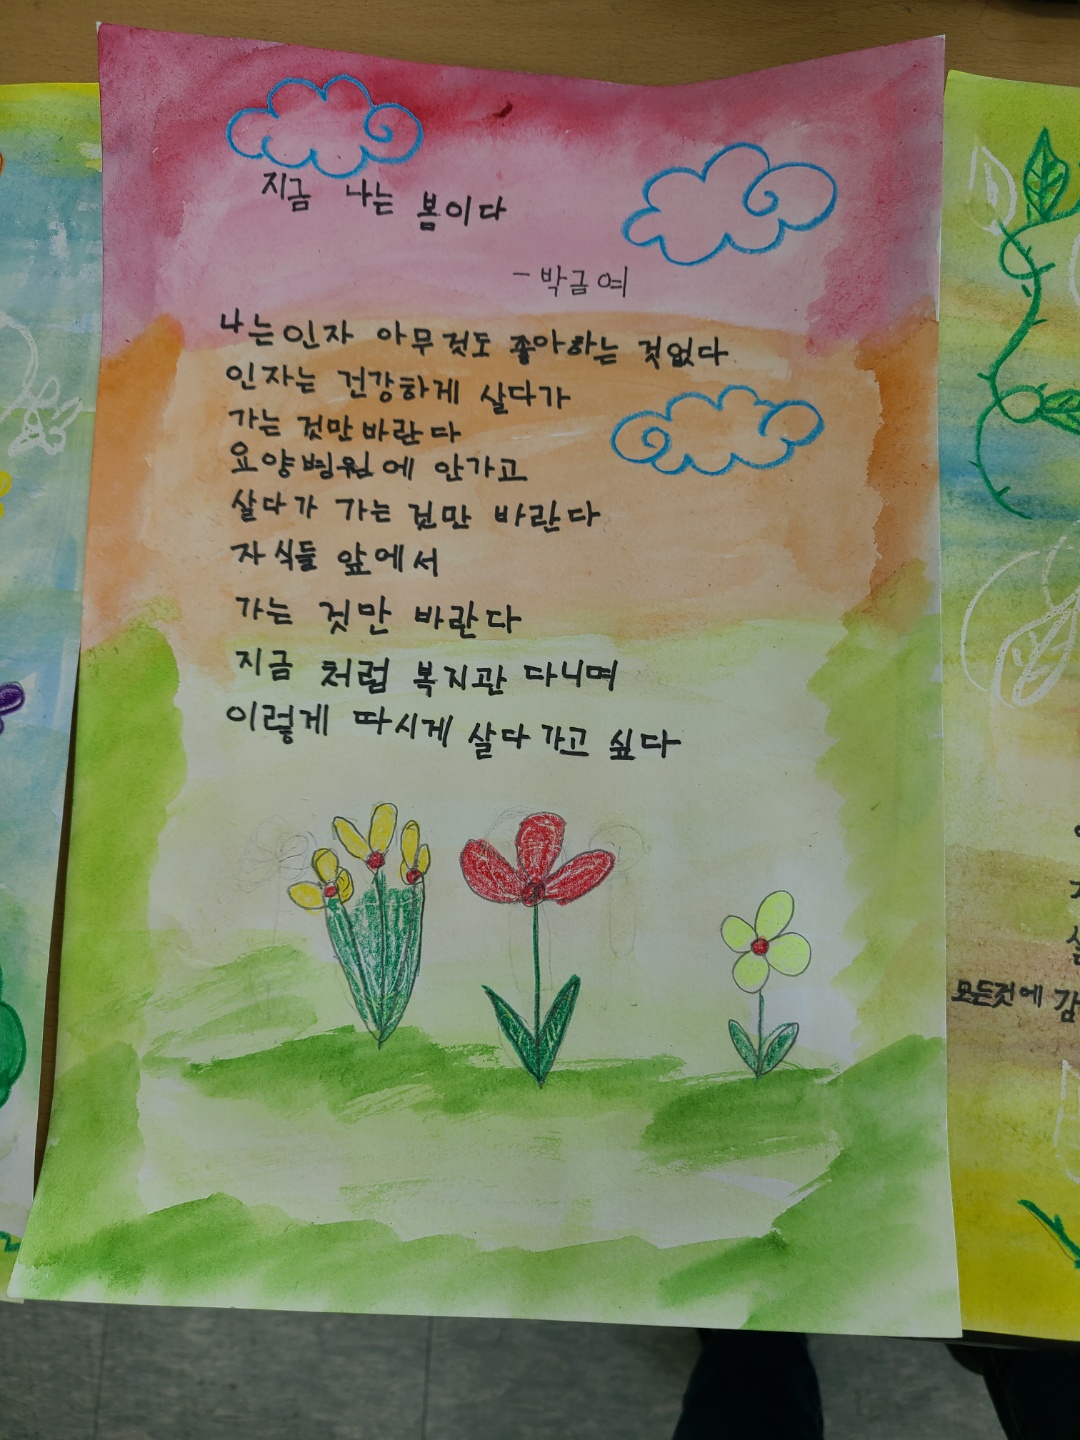 지금 나는 봄이다
- 박금여
나는 인자 아무것도 좋아하는 것없다
인자는 건강하게 살다가
가는 것만 바란다
요양병원에 안가고
살다가 가는 것만 바란다
자식들 앞에서
가는 것만 바란다
지금 처럼 복지관 다니며
이렇게 따시게 살다 가고 싶다
모든것에 감